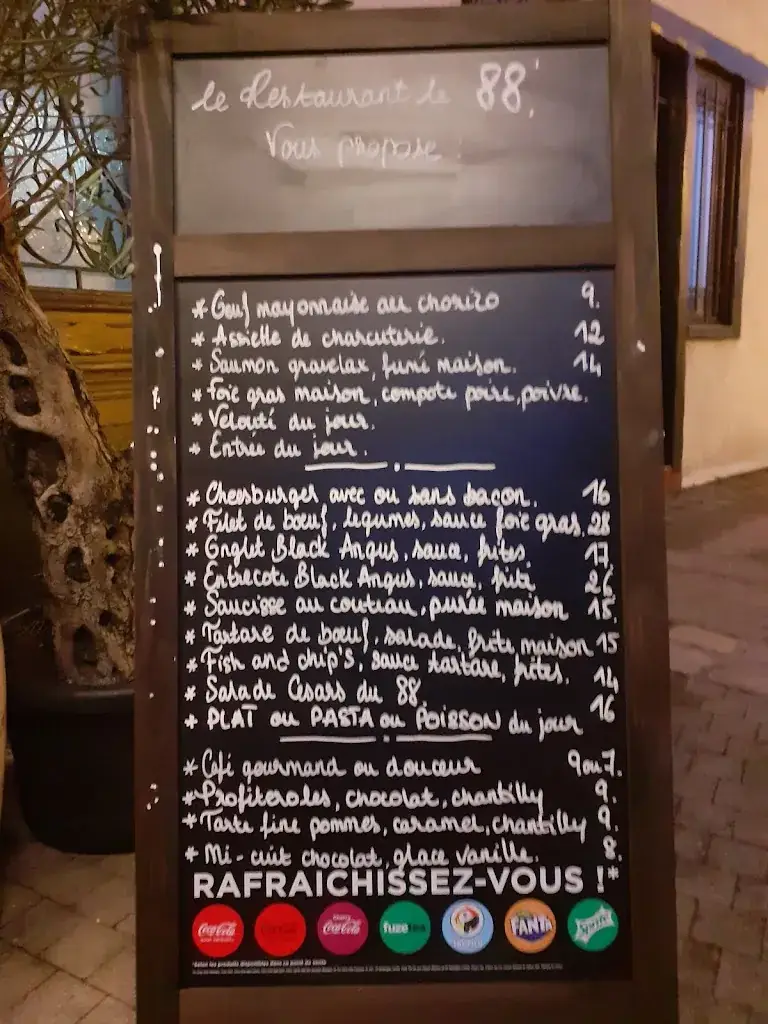 Le Restaurant le 88'
Vous propose :
* Oeuf mayonnaise au chorizo 9.
* Assiette de charcuterie. 12
* Saumon gravelax, fumé maison. 14
* Foie gras maison, compote poire, poivre.
* Velouté du jour.
* Entrée du jour.
* Cheesburger avec ou sans bacon. 16
* Filet de bœuf, légumes, sauce foie gras. 28
* Onglet Black Angus, sauce, frites 17
* Entrecote Black Angus, sauce, frite 26
* Saucisse au couteau, purée maison 15.
* Tartare de bœuf, salade, frite maison 15
* Fish and chip's, sauce tartare, frites. 14
* Salade Cesars du 88. 16
* PLAT ou PASTA ou POISSON du jour
* Café gourmand ou douceur 9 ou 7.
* Profiteroles, chocolat, chantilly 9.
* Tarte fine pommes, caramel, chantilly 9.
* Mi-cuit chocolat, glace vanille. 8.
RAFRAICHISSEZ-VOUS !*
Coca-Cola Coca-Cola Coca-Cola fuzetea TROPICO FANTA Sprite
*Selon les produits disponibles dans ce point de vente